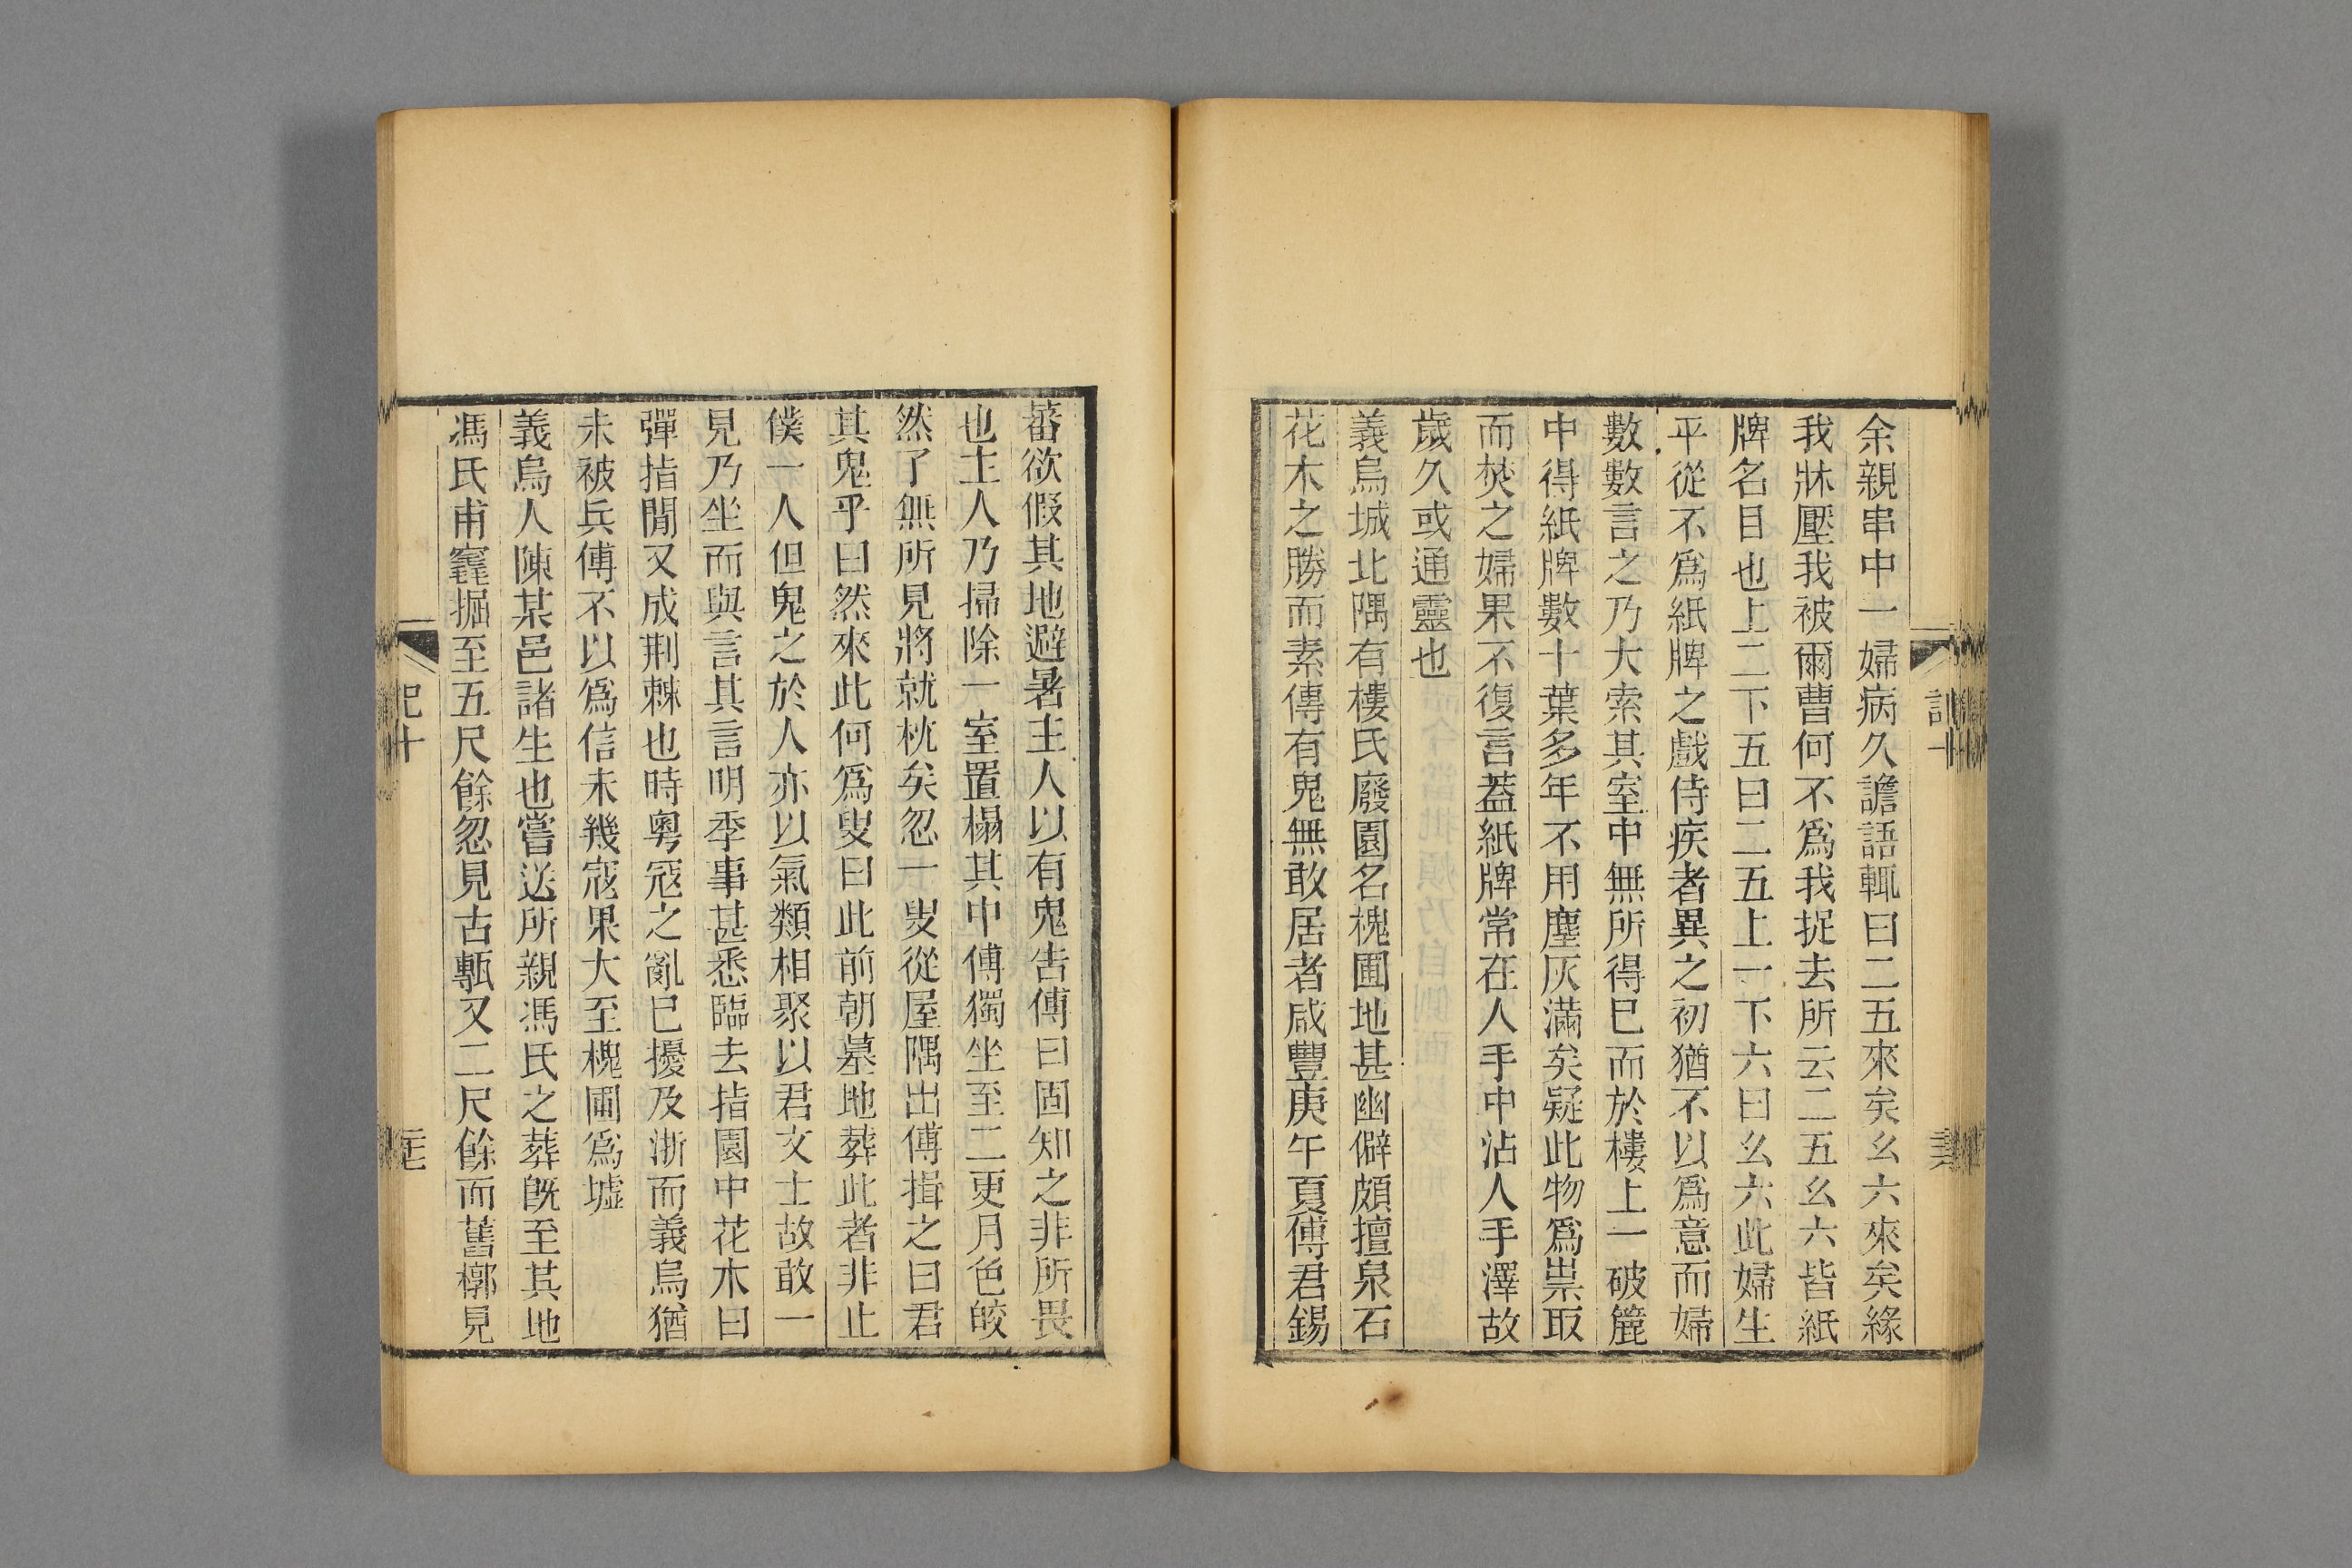 余親串中一婦病久譫語輒曰二五來矣幺六來矣緣
我牀壓我被爾曹何不爲我捉去所云二五幺六皆紙
牌名目也上二下五曰二五上一下六曰幺六此婦生
平從不爲紙牌之戲侍疾者異之初猶不以爲意而婦
數數言之乃大索其室中無所得已而於樓上一破簏
中得紙牌數十葉多年不用塵灰滿矣疑此物爲祟取
而焚之婦果不復言葢紙牌常在人手中沾人手澤故
歲久或通靈也
義烏城北隅有樓氏廢園名槐圃地甚幽僻頗擅泉石
花木之勝而素傳有鬼無敢居者咸豐庚午夏傅君錫
蕃欲假其地避暑主人以有鬼吿傅曰固知之非所畏
也主人乃掃除一室置榻其中傅獨坐至二更月色皎
然了無所見將就枕矣忽一叟從屋隅出傅揖之曰君
其鬼乎曰然來此何爲叟曰此前朝墓地葬此者非止
僕一人但鬼之於人亦以氣類相聚以君文士故敢一
見乃坐而與言其言明季事甚悉臨去指園中花木曰
彈指閒又成荆棘也時粤冦之亂已擾及浙而義烏猶
未被兵傅不以爲信未幾寇果大至槐圃爲墟
義烏人陳某邑諸生也嘗送所親馮氏之葬旣至其地
馮氏甫窆掘至五尺餘忽見古甎又二尺餘而舊槨見
記十